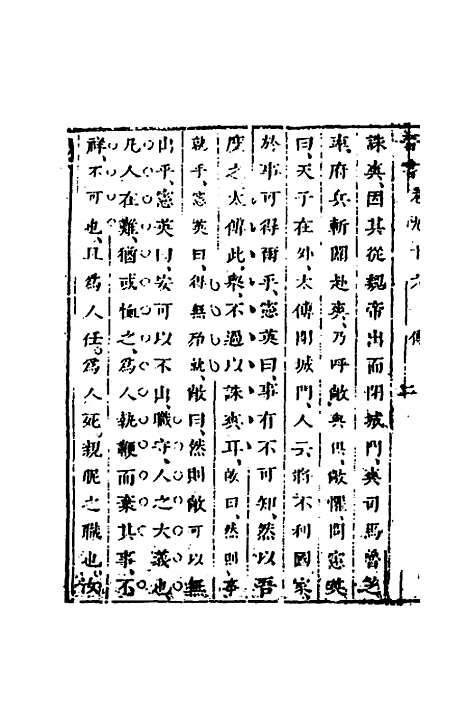 晉書卷九十六 傳 二
誅爽因其從魏帝出而閉城門爽司馬魯芝
率府兵斬關赴爽乃呼敞與俱敞懼問憲英
曰天子在外太傅閉城門人云將不利國家
於事可得爾乎憲英曰事有不可知然以吾
度之太傅此舉不過以誅爽耳敞曰然則事
就乎憲英曰得無殆就敞曰然則敞可以無
出乎憲英曰安可以不出職守人之大義也
凡人在難猶或恤之爲人執鞭而棄其事不
祥不可也且爲人任爲人死親昵之職也汝